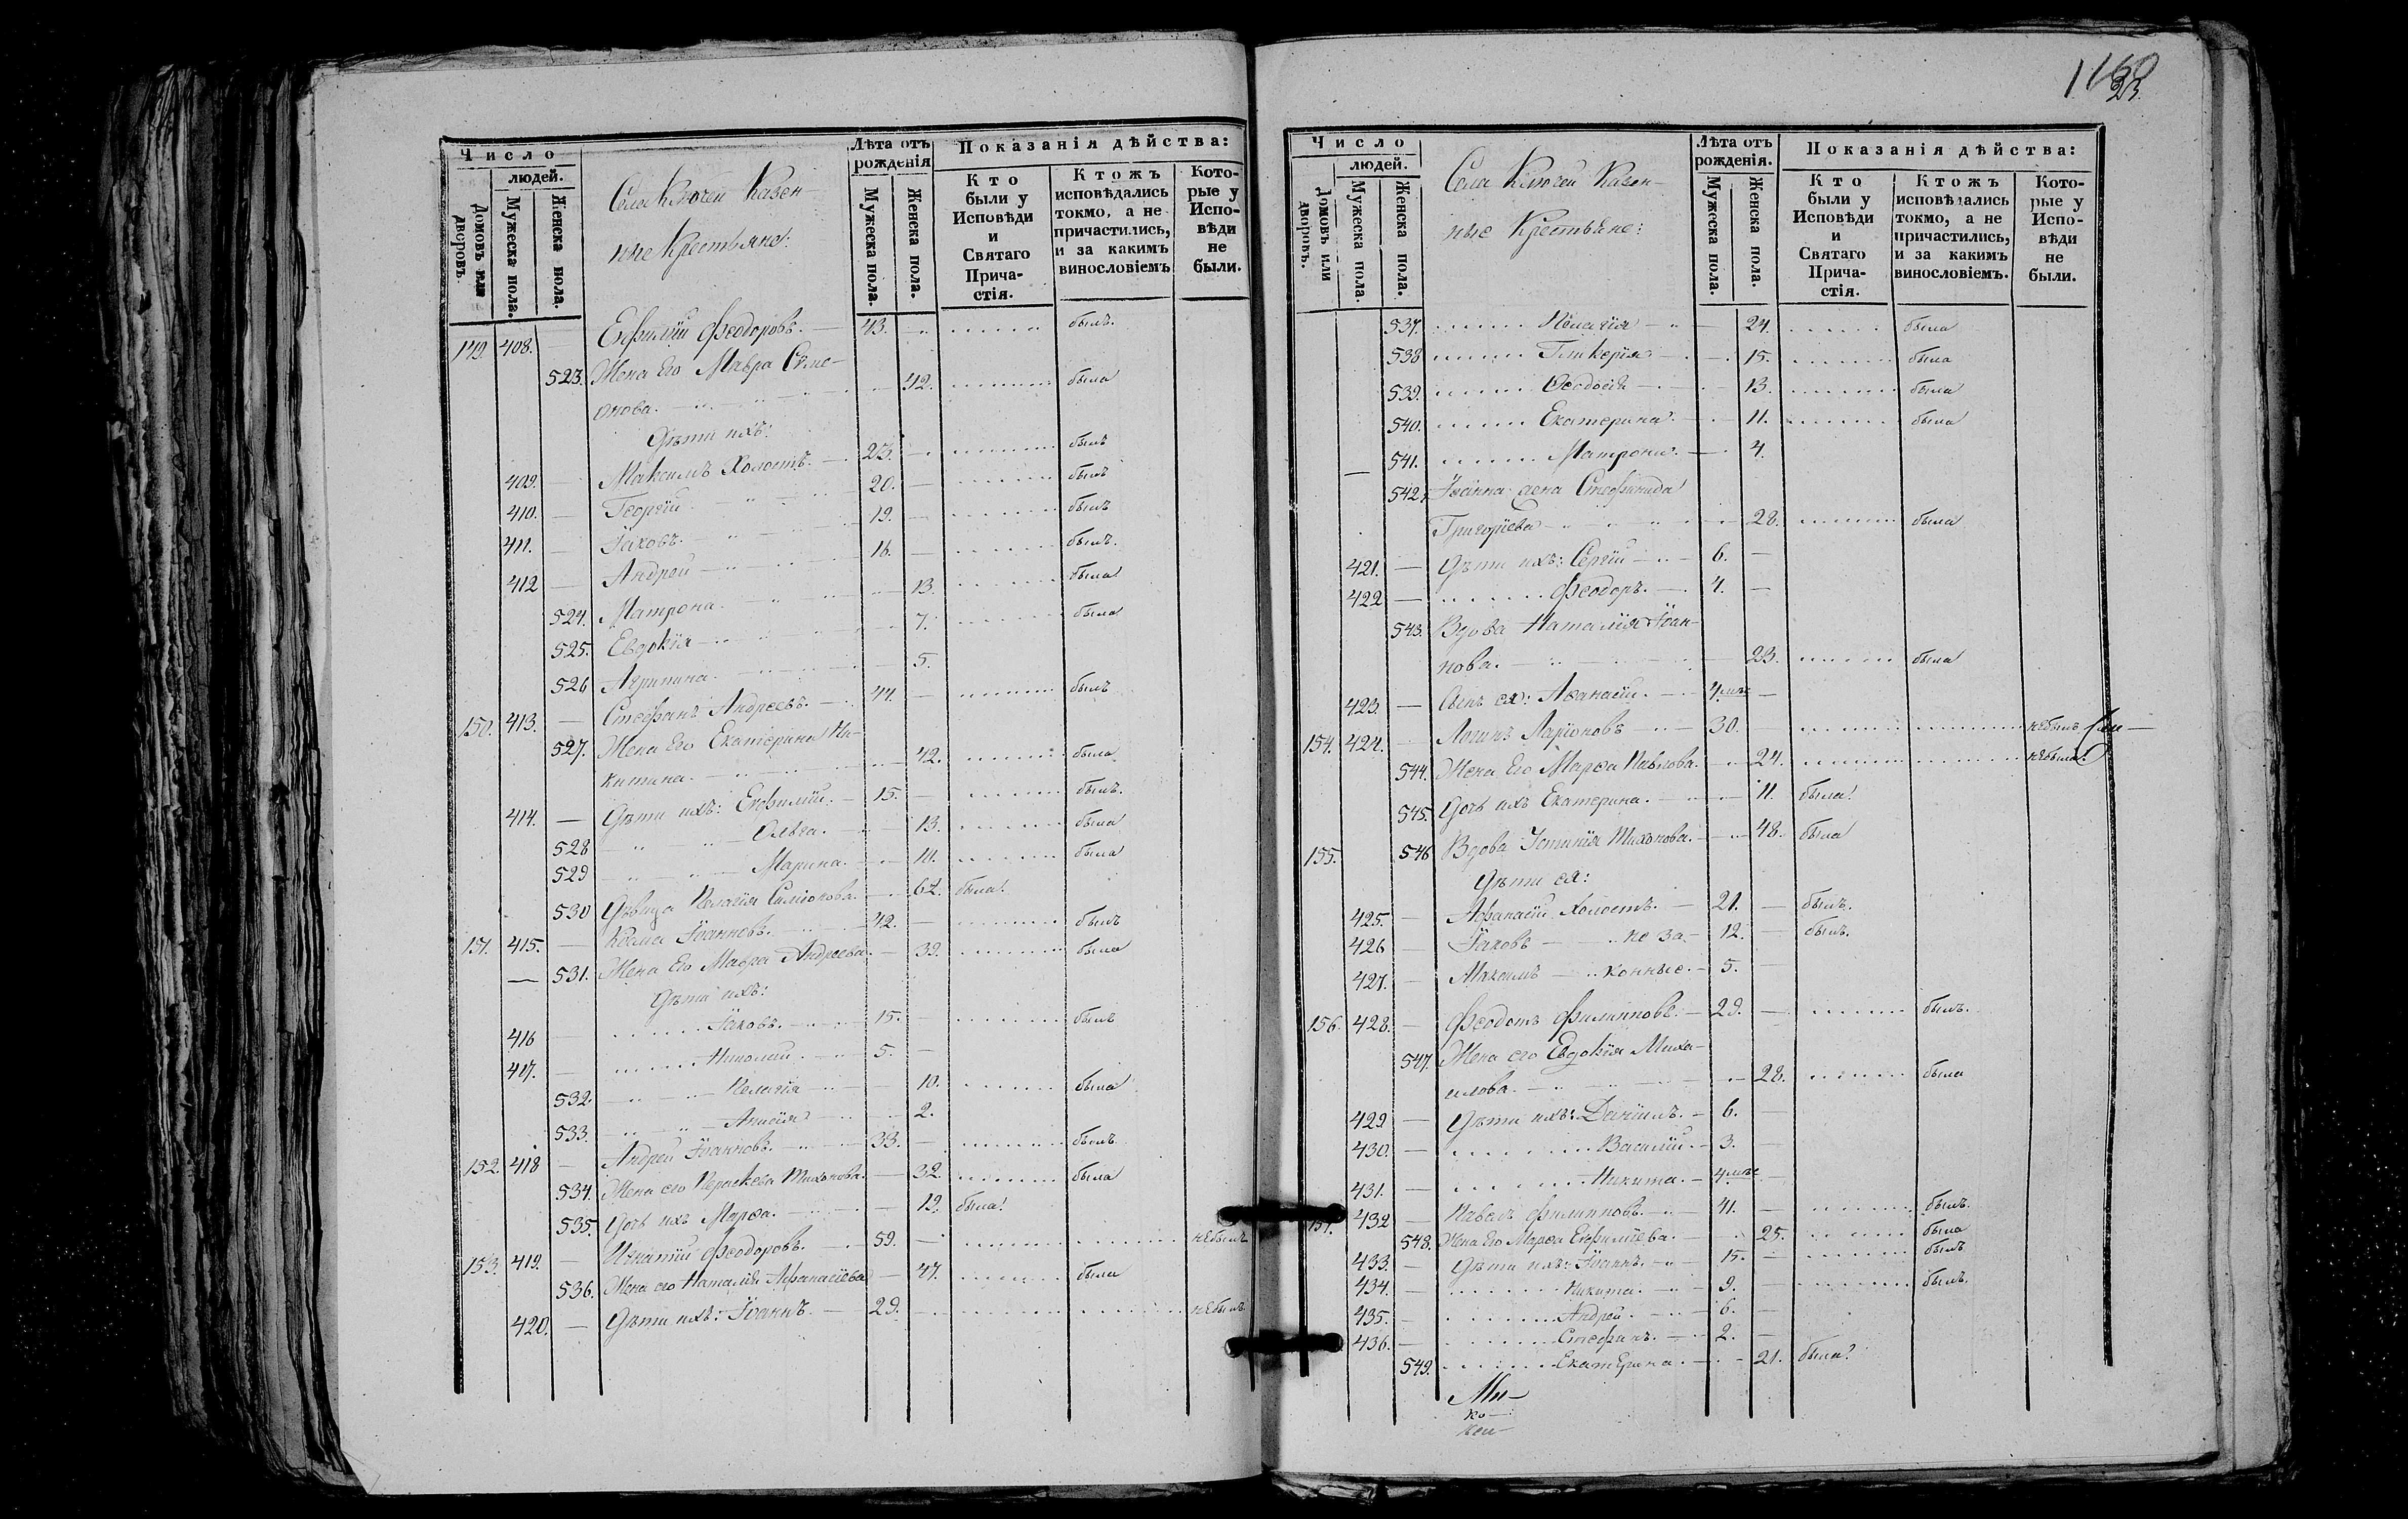 Число
людей.
Домовъ или дворовъ.
Мужеска пола.
Женска пола.
Села Ключей Казен
ные Крестьяне:
Лѣта отъ рожденія
Мужеска пола.
Женска пола.
Показанія дѣйства:
Кто были у Исповѣди и Святаго Причастія.
Ктожъ исповѣдались токмо, а не причастились, и за какимъ винословіемъ
Которые у Исповѣди не были.
149. 408. — Евфимій Феодоровъ. — 43. былъ.
523. Жена Его Мавра Сѵме-
онова. 42. была
Дѣти ихъ:
409. — Максимъ Холостъ. — 23. былъ
410. — Георгій 20. — былъ
411. — Іаковъ. 19. — былъ
412 — Андрей 16. — былъ.
524. Матрона. 13. была
525. Евдокія 7. была
526 Агрипина. 5.
150. 413. — Стефанъ Андреевъ. 44. — былъ
527. Жена Его Екатерина Ни-
китина. 42. была
414. — Дѣти ихъ: Евфимій. — 15. — былъ.
528 Ольга. 13. была
529 Марина. 10. была
530 Дѣвица Пелагія Симіонова. 62. была
151. 415. — Козма Іоанновъ. 42. — былъ
— 531. Жена Его Мавра Андреева. 39. была
Дѣти ихъ:
416 — Іаковъ. 15. — былъ
417. — Николай. 5. —
532. Пелагія 10. была
533. Анисія 2.
152. 418 — Андрей Іоанновъ. 33. — былъ.
534. Жена его Параскева Тихонова. 32. была
535. Дочь ихъ Марѳа. 12. была
153. 419. — Игнатій Феодоровъ. 59. — небылъ
536. Жена его Наталія Афанасіева 47. была
420. — Дѣти ихъ: Іоаннъ. — 29. небылъ
23
Число
людей.
Домовъ или дворовъ.
Мужеска пола.
Женска пола.
Села Ключей Казен-
ные Крестьяне:
Лѣта отъ рожденія.
Мужеска пола.
Женска пола.
Показанія дѣйства:
Кто были у Исповѣди и Святаго Причастія.
Ктожъ исповѣдались токмо, а не причастились, и за какимъ винословіемъ.
Которые у Исповѣди не были.
537. Пелагія 24. была
538 Гликерія 15. была
539. Ѳеодосія 13. была
540. Екатерина. 11. была
541. Матрона. 4.
542. Іоанна жена Стефанида
Григоріева 28. была
421. — Дѣти ихъ: Сергій 6. —
422 — Феодоръ. 4. —
543. Вдова Наталія Іоан-
нова. 23. была
423. — Сынъ ея: Аѳанасій. 4 —
154. 424. — Логинъ Ларіоновъ 30. небылъ
544. Жена Его Марѳа Павлова. 24. небыла
545. Дочь ихъ Екатерина. 11. была
155. 546 Вдова Устинія Тихонова. 48. была
Дѣти ея:
425. — Афанасій Холостъ. — 21. — былъ.
426 — Іаковъ — не за- 12. — былъ.
427. — Максимъ — конные. — 5. —
156. 428. — Феодотъ Филипповъ. — 29. — былъ.
547. Жена его Евдокія Миха-
илова. 28. была
429 — Дѣти ихъ: Даніилъ. — 6. —
430. — Василій. — 3. —
431. — Никита. — 4 —
157. 432 — Павелъ Филипповъ 41. — былъ.
548. Жена Его Марѳа Евфиміева. 25. была
433. — Дѣти ихъ: Іоаннъ. 15. — былъ
434. — Никита. 9. — былъ.
435. — Андрей. 6. —
436. — Стефанъ. 2. —
549. Екатерина. 21. была